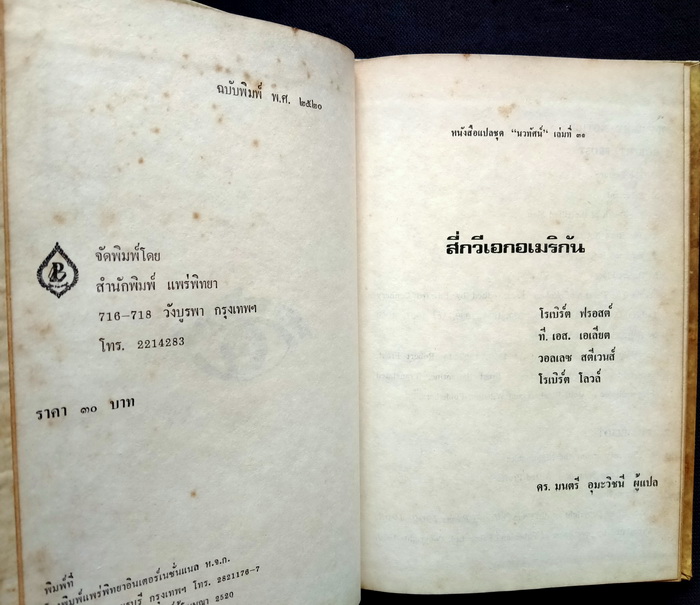 ฉบับพิมพ์ พ.ศ. ๒๕๒๐
จัดพิมพ์โดย
สำนักพิมพ์ แพร่พิทยา
716-718 วังบูรพา กรุงเทพฯ
โทร. 2214283
ราคา ๓๐ บาท
พิมพ์ที่
พิมพ์แพร่พิทยาอินเตอร์เนชั่นแนล ห.จ.ก.
กรุงเทพฯ โทร. 2821176-7
2520
หนังสือแปลชุด "นวทัศน์" เล่มที่ ๓๑
สี่กวีเอกอเมริกัน
โรเบิร์ต ฟรอสต์
ที. เอส. เอเลียต
วอลเลซ สตีเวนส์
โรเบิร์ต โลวล์
ดร. มนตรี อุมะวิชนี ผู้แปล